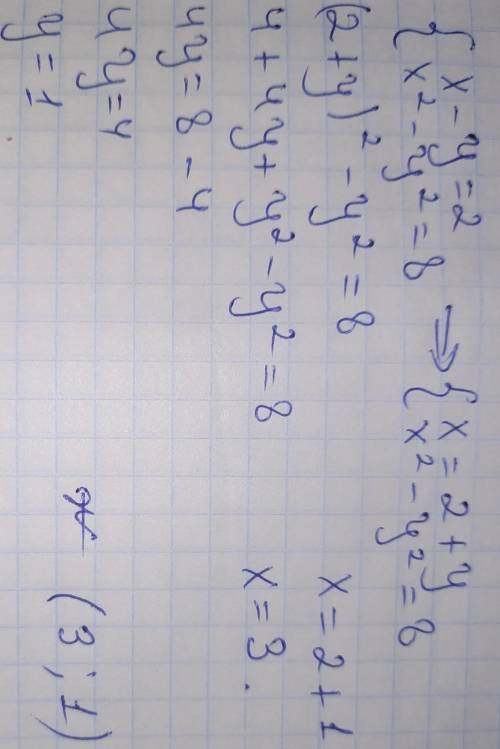 { x - y = 2
x² - y² = 8 ⇒ { x = 2 + y
x² - y² = 8
(2 + y)² - y² = 8
4 + 4y + y² - y² = 8
4y = 8 - 4
4y = 4
y = 1
x = 2 + 1
x = 3.
(3 ; 1)